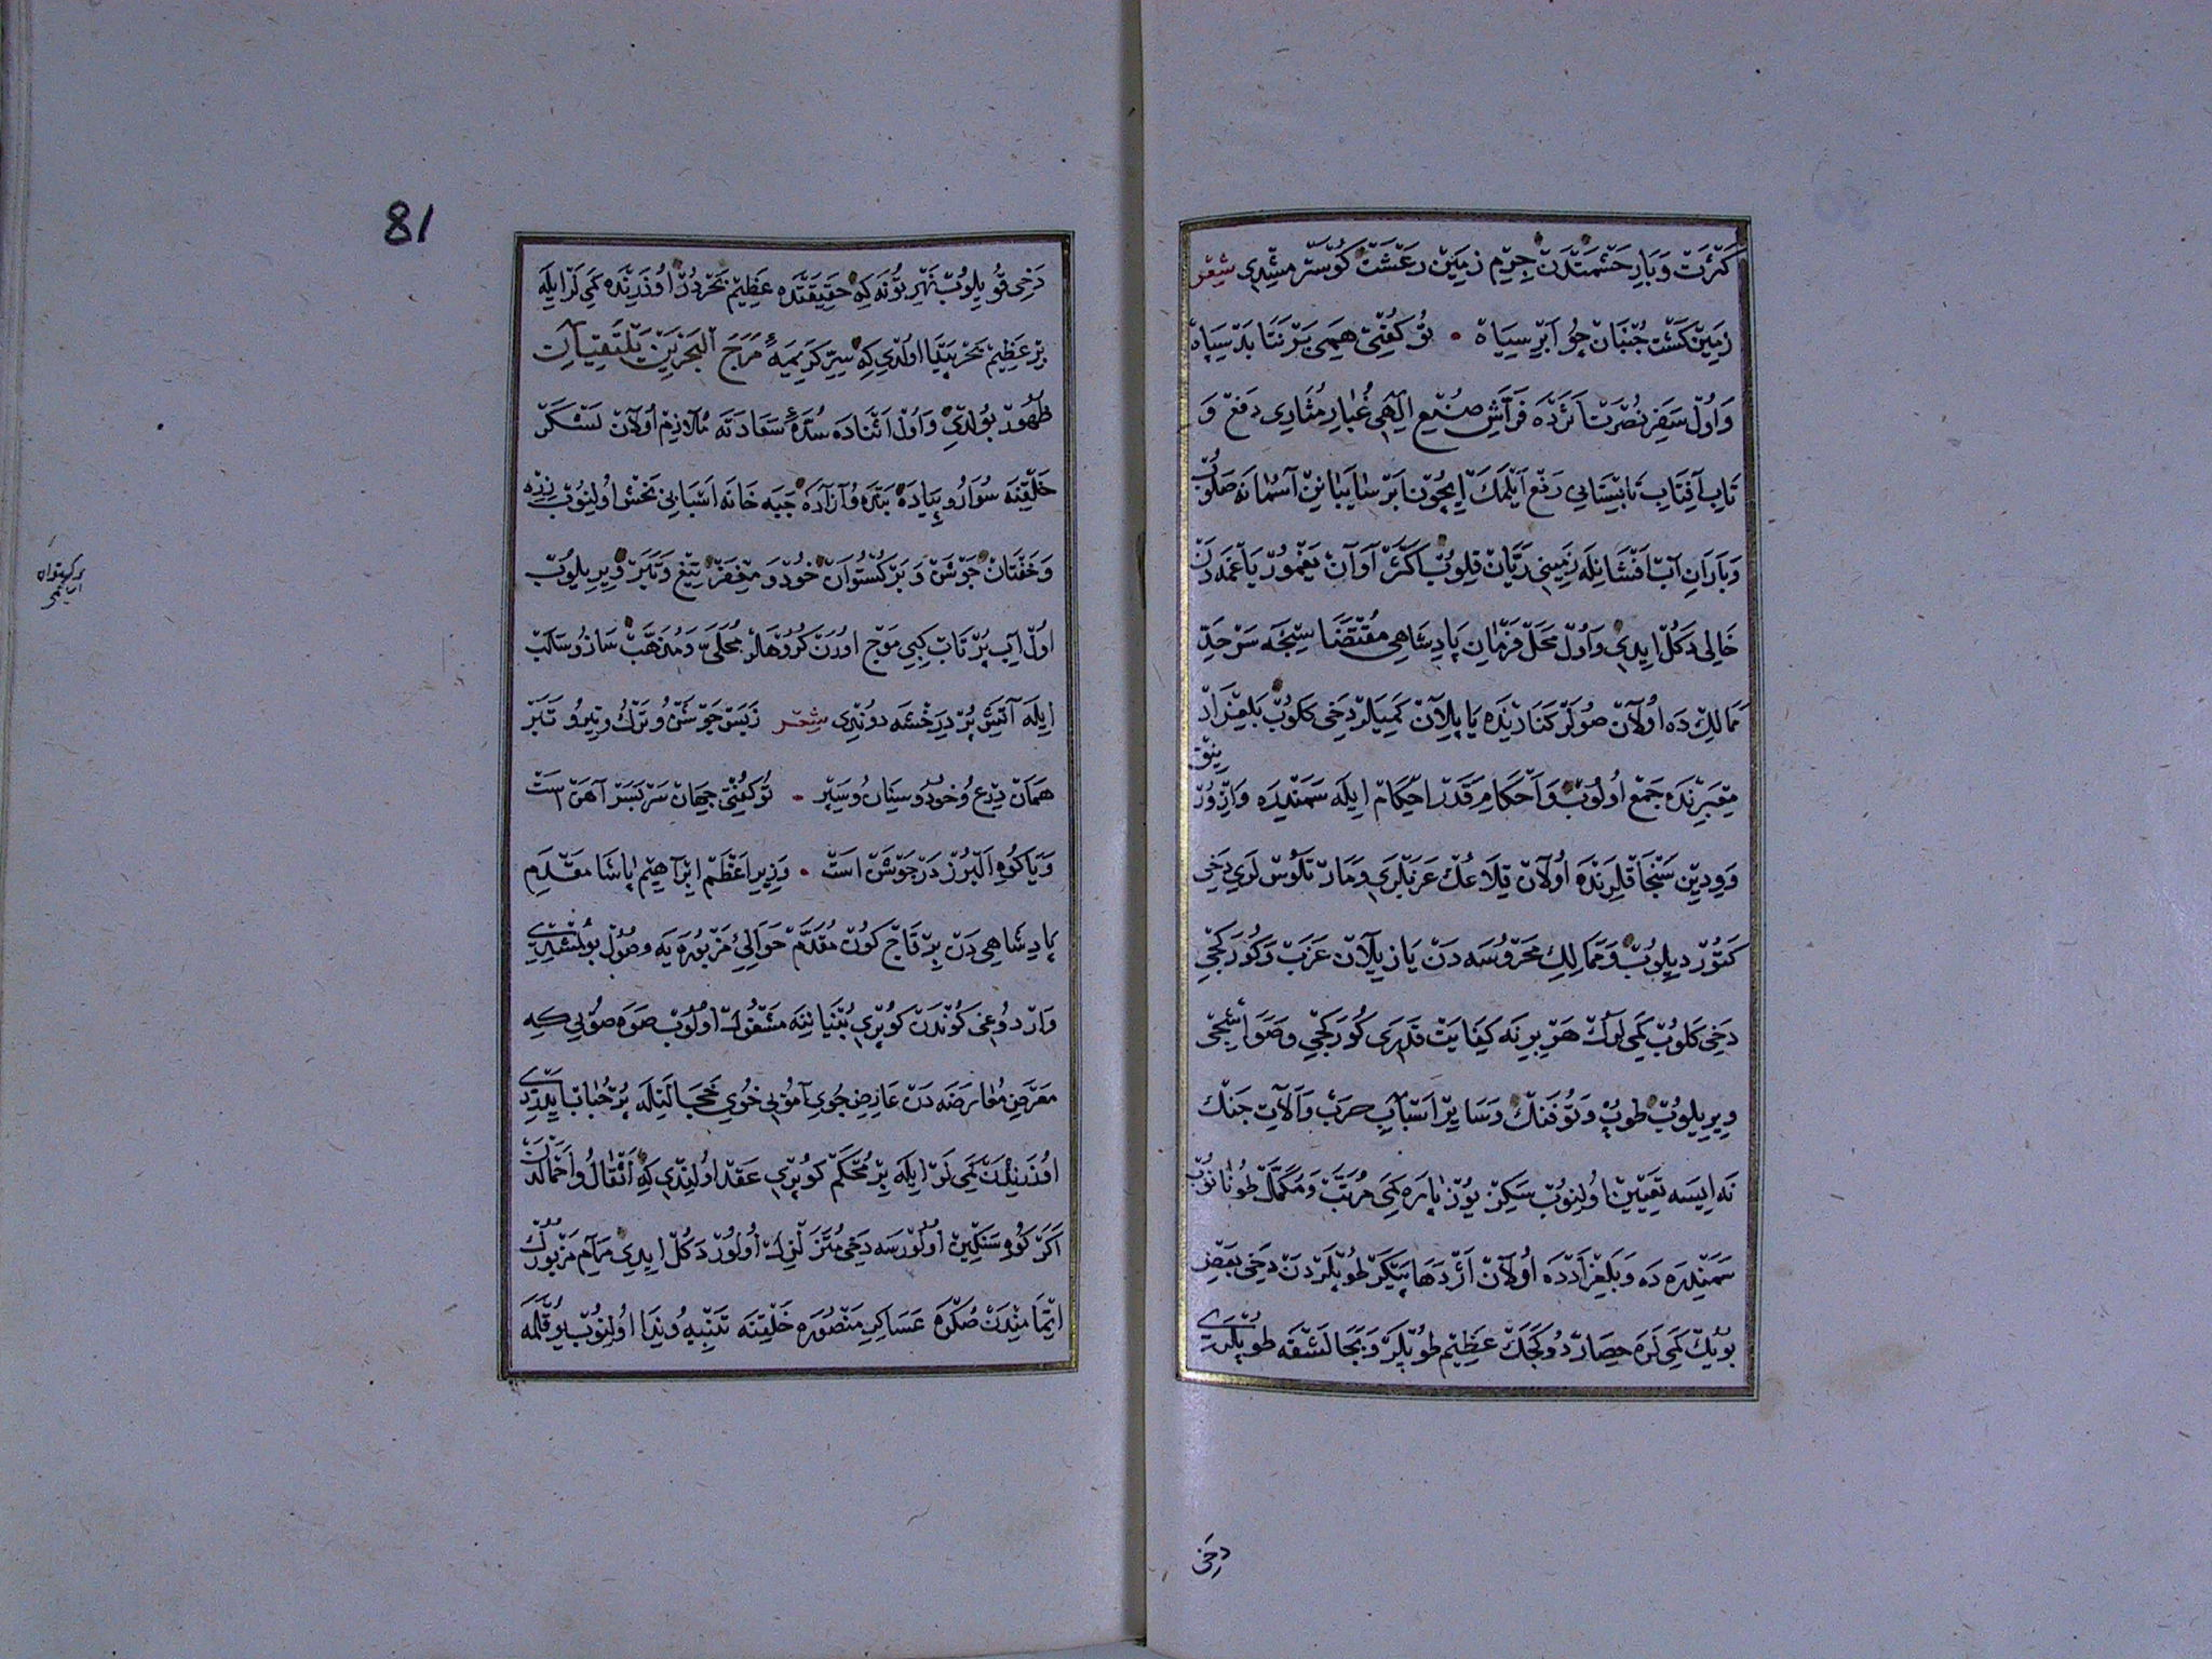 كَثْرَت وَبَارِ حَشْمَتْدَن جِرْمِ زمين رَعْشَت كوسترمشيدى شعر
زمين كشت جنبان چو ابر سياه • تو كفتى همى بر نتابد سپاه
و اول سفر نصرت اثرده فراش صنع الهى غبار مثارى دفع و
تاب آفتاب تابستانى رفع ايلمك ايچون ابر سايبانن آسمانه صلوب
و باران آب افشانله زمينى ريان قلوب اكثر آوان يغمور ياغمه دن
خالى دكل ايدى و اول محل فرمان پادشاهى مقتضاسنجه سرحد
ممالك ده اولان صولر كنارنده ياپيلان كميلر دخى كلوب بلغراد
معبرنده جمع اولوب و احكام قدر احكام ايله سمندره و ازورنيق
و ويدين سنجاقلرنده اولان قلاعك عربلرى و مارتلوس لرى دخى
كتورديلوب و ممالك محروسه دن يازيلان عزب و كوركجى
دخى كلوب كمى لرك هر برينه كفايت قدرى كوركجى و صواشجى
ويريلوب طوپ و تفنك و ساير اسباب حرب و آلات جنك
نه ايسه تعيين اولنوب سكز يوز پاره كمى مرتب و مكمل طونانوب
سمندره ده و بلغرادده اولان اژدها پيكر طوپلردن دخى بعض
بويك كمى لره حصار دوكجك عظيم طوپلر و بجالشقه طوپلرى
دخى
81
دخى قويلوب نهر تونه كه حقيقتده عظيم بحردر اوزرنده كمى لر ايله
بر عظيم بحر پيدا اولدى كه سر كريمه مرج البحرين يلتقيان
ظهور بولدى و اول اثناده سده سعادته ملازم اولان لشكر
خلقنه سوار و پياده بنده و آزاده جبه خانه اسبابى بخش اولنوب زره
و خفتان جوشن و بركستوان خود و مغفر تيغ و تبر ويريلوب
اول آب پر تاب كبى موج اورن كروهلر محلى و مذهب ساز و سلب
ايله آتش پر درخشه دوندى شعر ز بس جوشن و ترك و تير و تبر
همان درع و خود و سنان و سپر • تو كفتى جهان سربسر آهن است
و يا كوه البرز در جوشن است • وزير اعظم ابراهيم پاشا مقدم
پادشاهى دن بر قاچ كون مقدم حوالئ مزبوره يه وصول بولمشدى
واردوغى كوندن كوپرى بنياننه مشغول اولوب صوه صوبى كه
معرض معارضه دن عارض جوى آموبى خوى خجالتله پر حباب ايلردى
اوزرندن كمى لر ايله بر محكم كوپرى عقد اولندى كه اثقال و احمالدن
اكر كوه سنكين اولورسه دخى متزلزل اولور دكل ايدى مرام مزبورك
اتمامندن صكره عساكر منصوره خلقنه تنبيه و ندا اولنوب يوقلمه
بركستوان